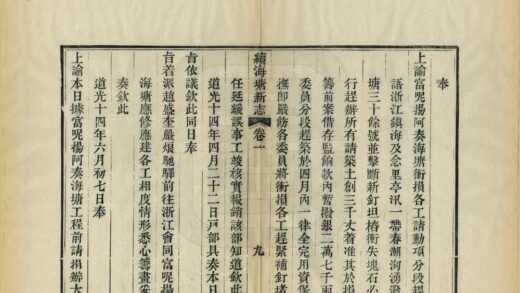 奉
上諭富呢揚阿奏海塘衝損各工請動項分段趕
語浙江鎮海及念里亭汛一帶春潮洶湧潑
塘三十餘號並擊斷新釘坦樁衝失塊石必
行趕辦所有請築土創三千丈着准其於損
籌前案借存監餉款內暫撥銀二萬七千兩
委員分段趕築於四月內一律全完用資保
撫卽嚴飭各委員將衝損各工趕緊補釘堵
續海塘新志 卷一 九
任延緩誤事工竣核實報銷該部知道欽此
道光十四年四月二十二日戶部具奏本日
旨依議欽此同日奉
旨着派趙盛奎嚴烺馳驛前往浙江會同富呢揚
海塘應修應建各工相度情形悉心籌畫妥
奏欽此
道光十四年六月初七日奉
上諭本日據富呢揚阿奏海塘工程前請捐辦大